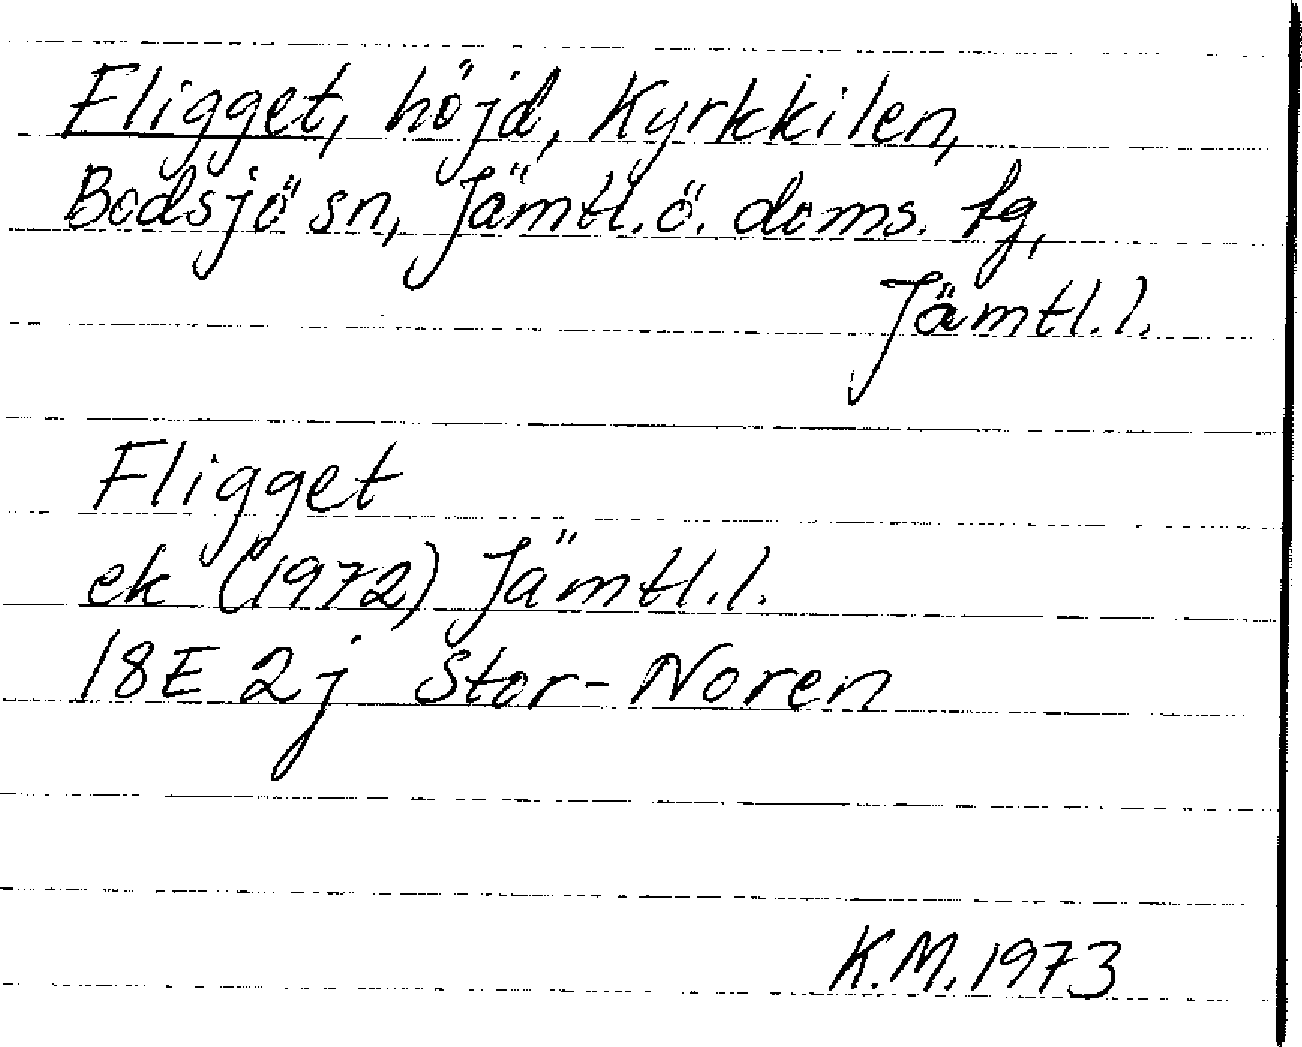 Fligget, höjd, Kyrkkilen,
Bodsjö sn, Jämtl. ö. doms. tg,
Jämtl. l.
Fligget
ek (1972) Jämtl. l.
18E 2j Stor-Noren
K.M. 1973